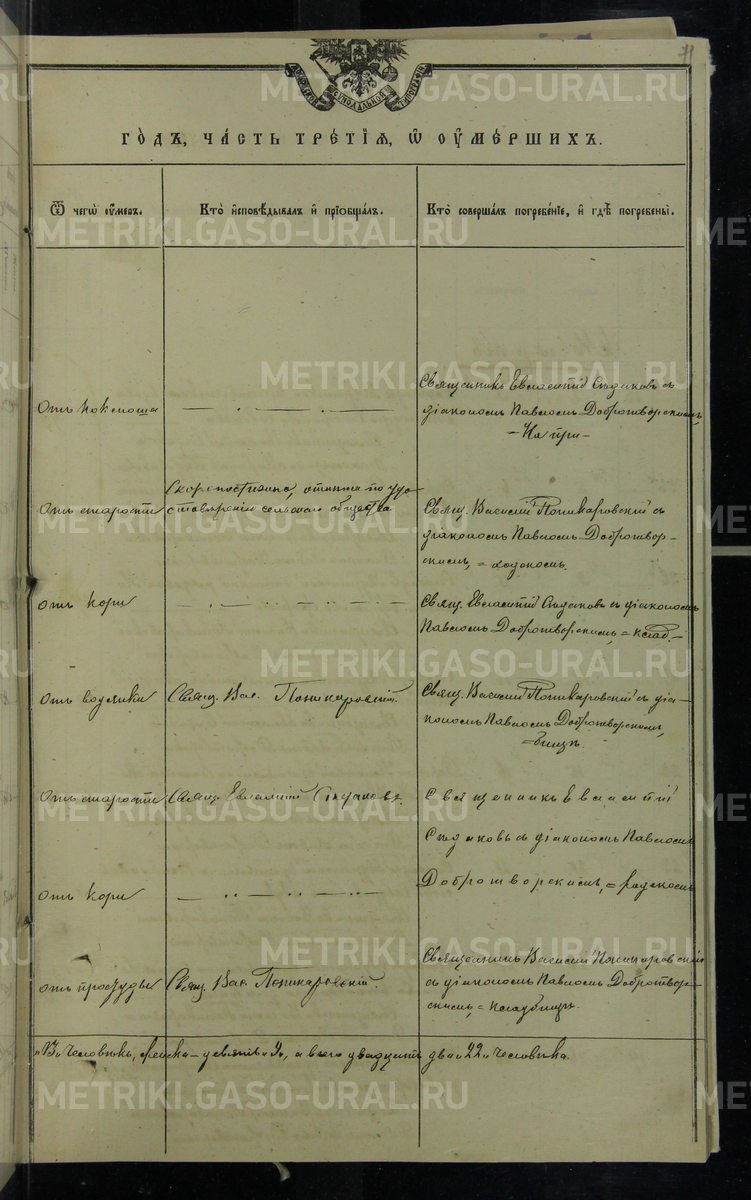 71
ГОДЪ, ЧАСТЬ ТРЕТІѦ, Ѡ ОУМЕРШИХЪ.
Ѿ чегѡ оумеръ.
Кто исповѣдывалъ и пріобщалъ.
Кто совершалъ погребеніе, и гдѣ погребены.
Отъ кокоюша
Священникъ Евлампій Сѣдаковъ съ
діакономъ Павломъ Добротворскимъ,
— На при —
Отъ старости
Скоропостижно, отпѣта по удо
стовѣренію сельскаго общества
Свящ. Василій Поникаровскій съ
діакономъ Павломъ Добротвор-
скимъ, =
Отъ кори
Свящ. Евлампій Сѣдаковъ съ діакономъ
Павломъ Добротворскимъ, = клад. —
Отъ водянки
Свящ. Вас. Поникаровскій.
Свящ. Василій Поникаровскій съ діа-
кономъ Павломъ Добротворскимъ,
= бищѣ.
Отъ старости
Свящ. Евлампій Сѣдаковъ.
Священникъ Евлампій
Сѣдаковъ съ діакономъ Павломъ
Добротворскимъ, =
Отъ кори
Отъ простуды
Свящ. Вас. Поникаровскій.
Священникъ Василій Поникаровскій
съ діакономъ Павломъ Добротвор-
скимъ, = кладбищѣ.
„13„ человѣкъ, женска — девять „9„, а всего двадцать два „22„ человѣка.
METRIKI.GASO-URAL.RU